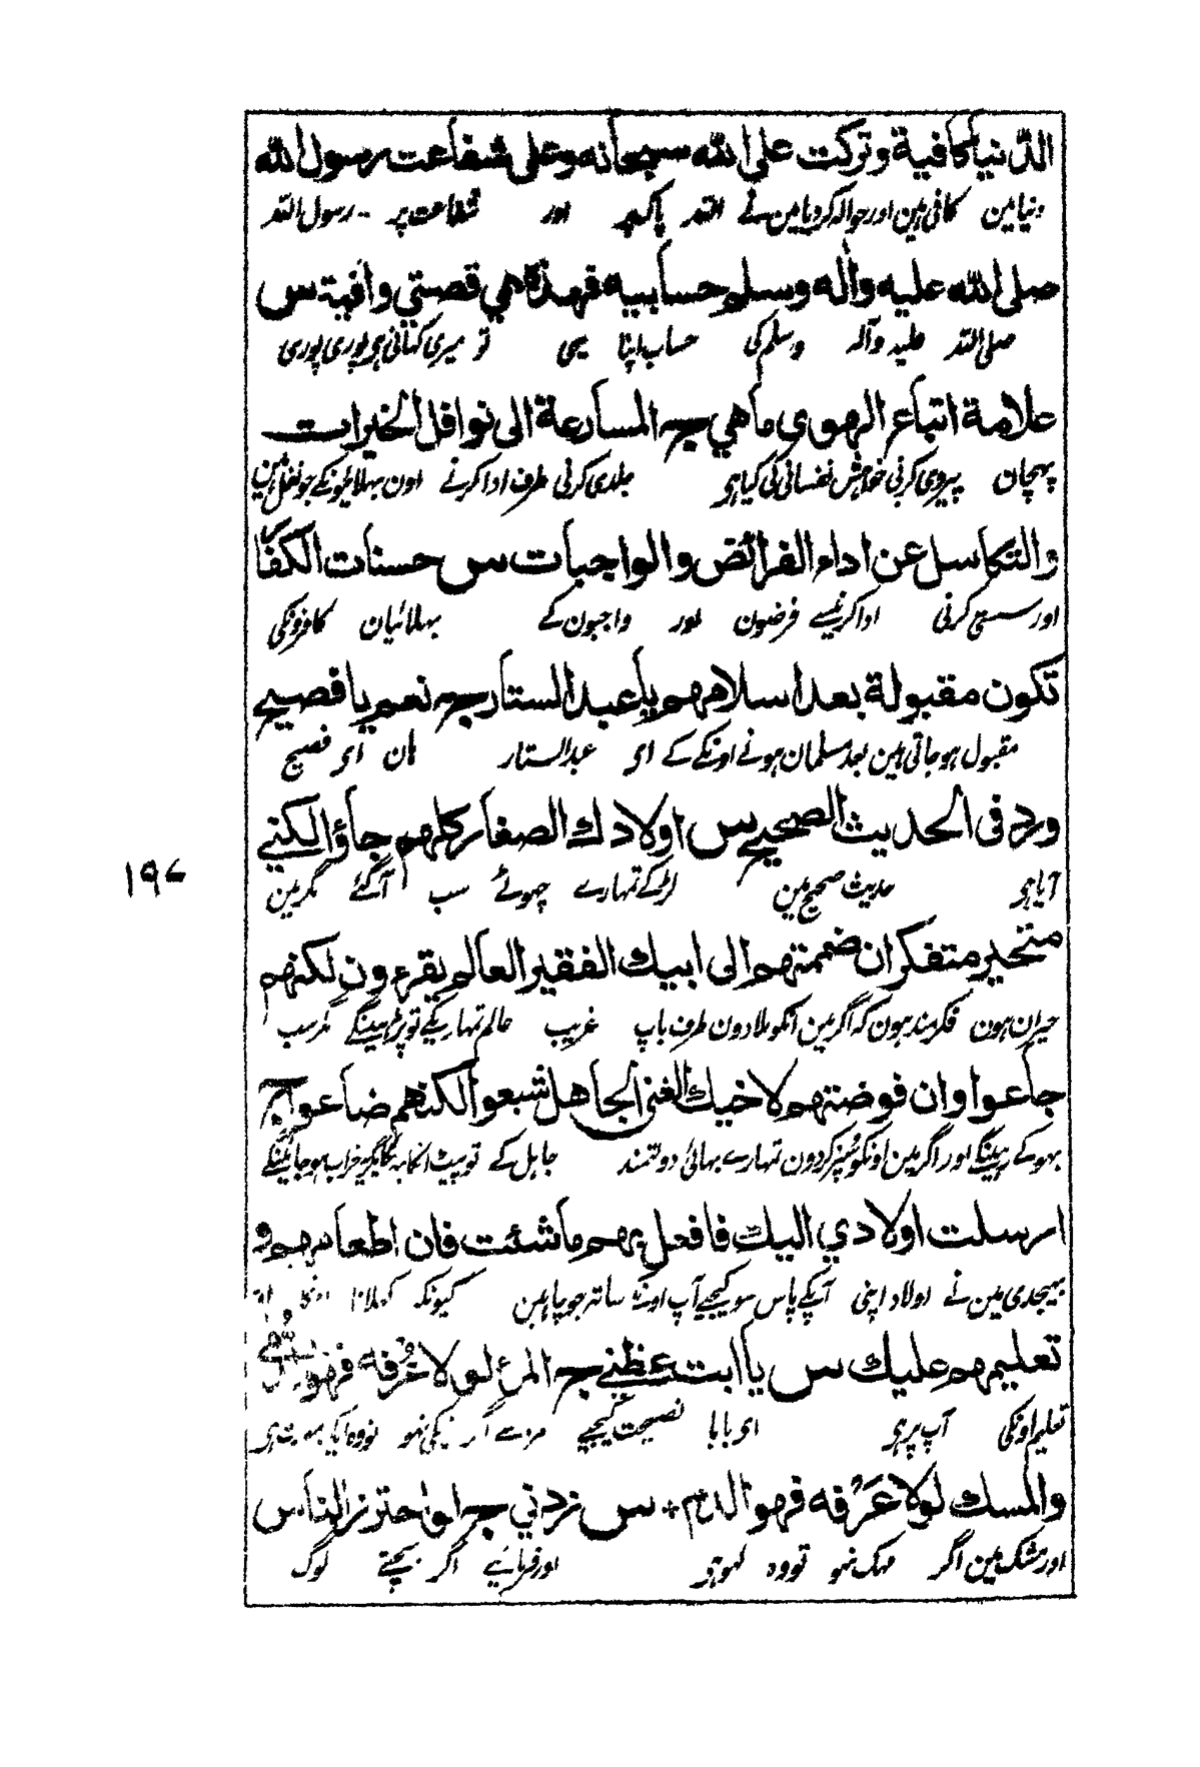 الدنيا كافية وتركت على الله سبحانه وعلى شفاعت رسول الله
دنيا مین کافی ہین اور حوالہ کردیا مین نے اللہ پاک پر اور شفاعت پر ۔۔ رسول اللہ
صلى الله عليه واله وسلم حسابيه فهذه هي قصتي وافية س
صلی اللہ علیہ وآلہ وسلم کی حساب اپنا یہی تو میری کہانی ہو پوری پوری
علامة اتباع الهوى ما هي جـ المسارعة الى نوافل الخيرات
پہچان پیروی کرنی خواہش نفسانی کی کیا ہو جلدی کرنی طرف ادا کرنے اون بہلائیونکے جو نفل ہین
والتكاسل عن اداء الفرائض والواجبات س حسنات الكفار
اور سستی کرنی ادا کرنیسے فرضون اور واجبون کے بہلائیان کافرونکی
تكون مقبولة بعد اسلامهم يا عبد الستار جـ نعم يا فصيح
مقبول ہو جاتی ہین بعد مسلمان ہونے اونکے کے ای عبدالستار ہان ای فصیح
ورد فى الحديث الصحيح س اولادك الصغار كلهم جاؤا لكني
آیا ہو حدیث صحیح مین لڑکے تمہارے چہوٹے سب آگئے مگر مین
١٩٧
متحير متفكر ان ضممتهم الى ابيك الفقير العالم يقرءون لكنهم
حیران ہون فکرمند ہون کہ اگر مین انکو ملادون طرف باپ غریب عالم تمہاریکے تو پڑہینگے مگر سب
جاعوا وان فوضتهم لاخيك الغنى الجاهل شبعوا لكنهم ضاعوا جـ
بہوکے رہینگے اور اگر مین اونکو سپرد کردون تمہارے بہائی دولتمند جاہل کے تو پیٹ انکا بہریگا مگر خراب ہو جائینگے
ارسلت اولادي اليك فافعل بهم ما شئت فان اطعامهم و
بہیجدی مین نے اولاد اپنی آپکے پاس سو کیجیے آپ اونکے ساتہ جو چاہین کیونکہ کہلانا
تعليمهم عليك س يا ابت عظني جـ المرء لولا عرفه فهو
تعلیم اونکی آپ پر ہو ای بابا نصیحت کیجیے مرد سے اگر نیکی نہو تو وہ
والمسك لولا عرفه فهو الدم + س زدني جـ لو احترز الناس
اور مشک مین اگر مہک نہو تو وہ لہو ہو اور فرمائیے اگر بچتے لوگ